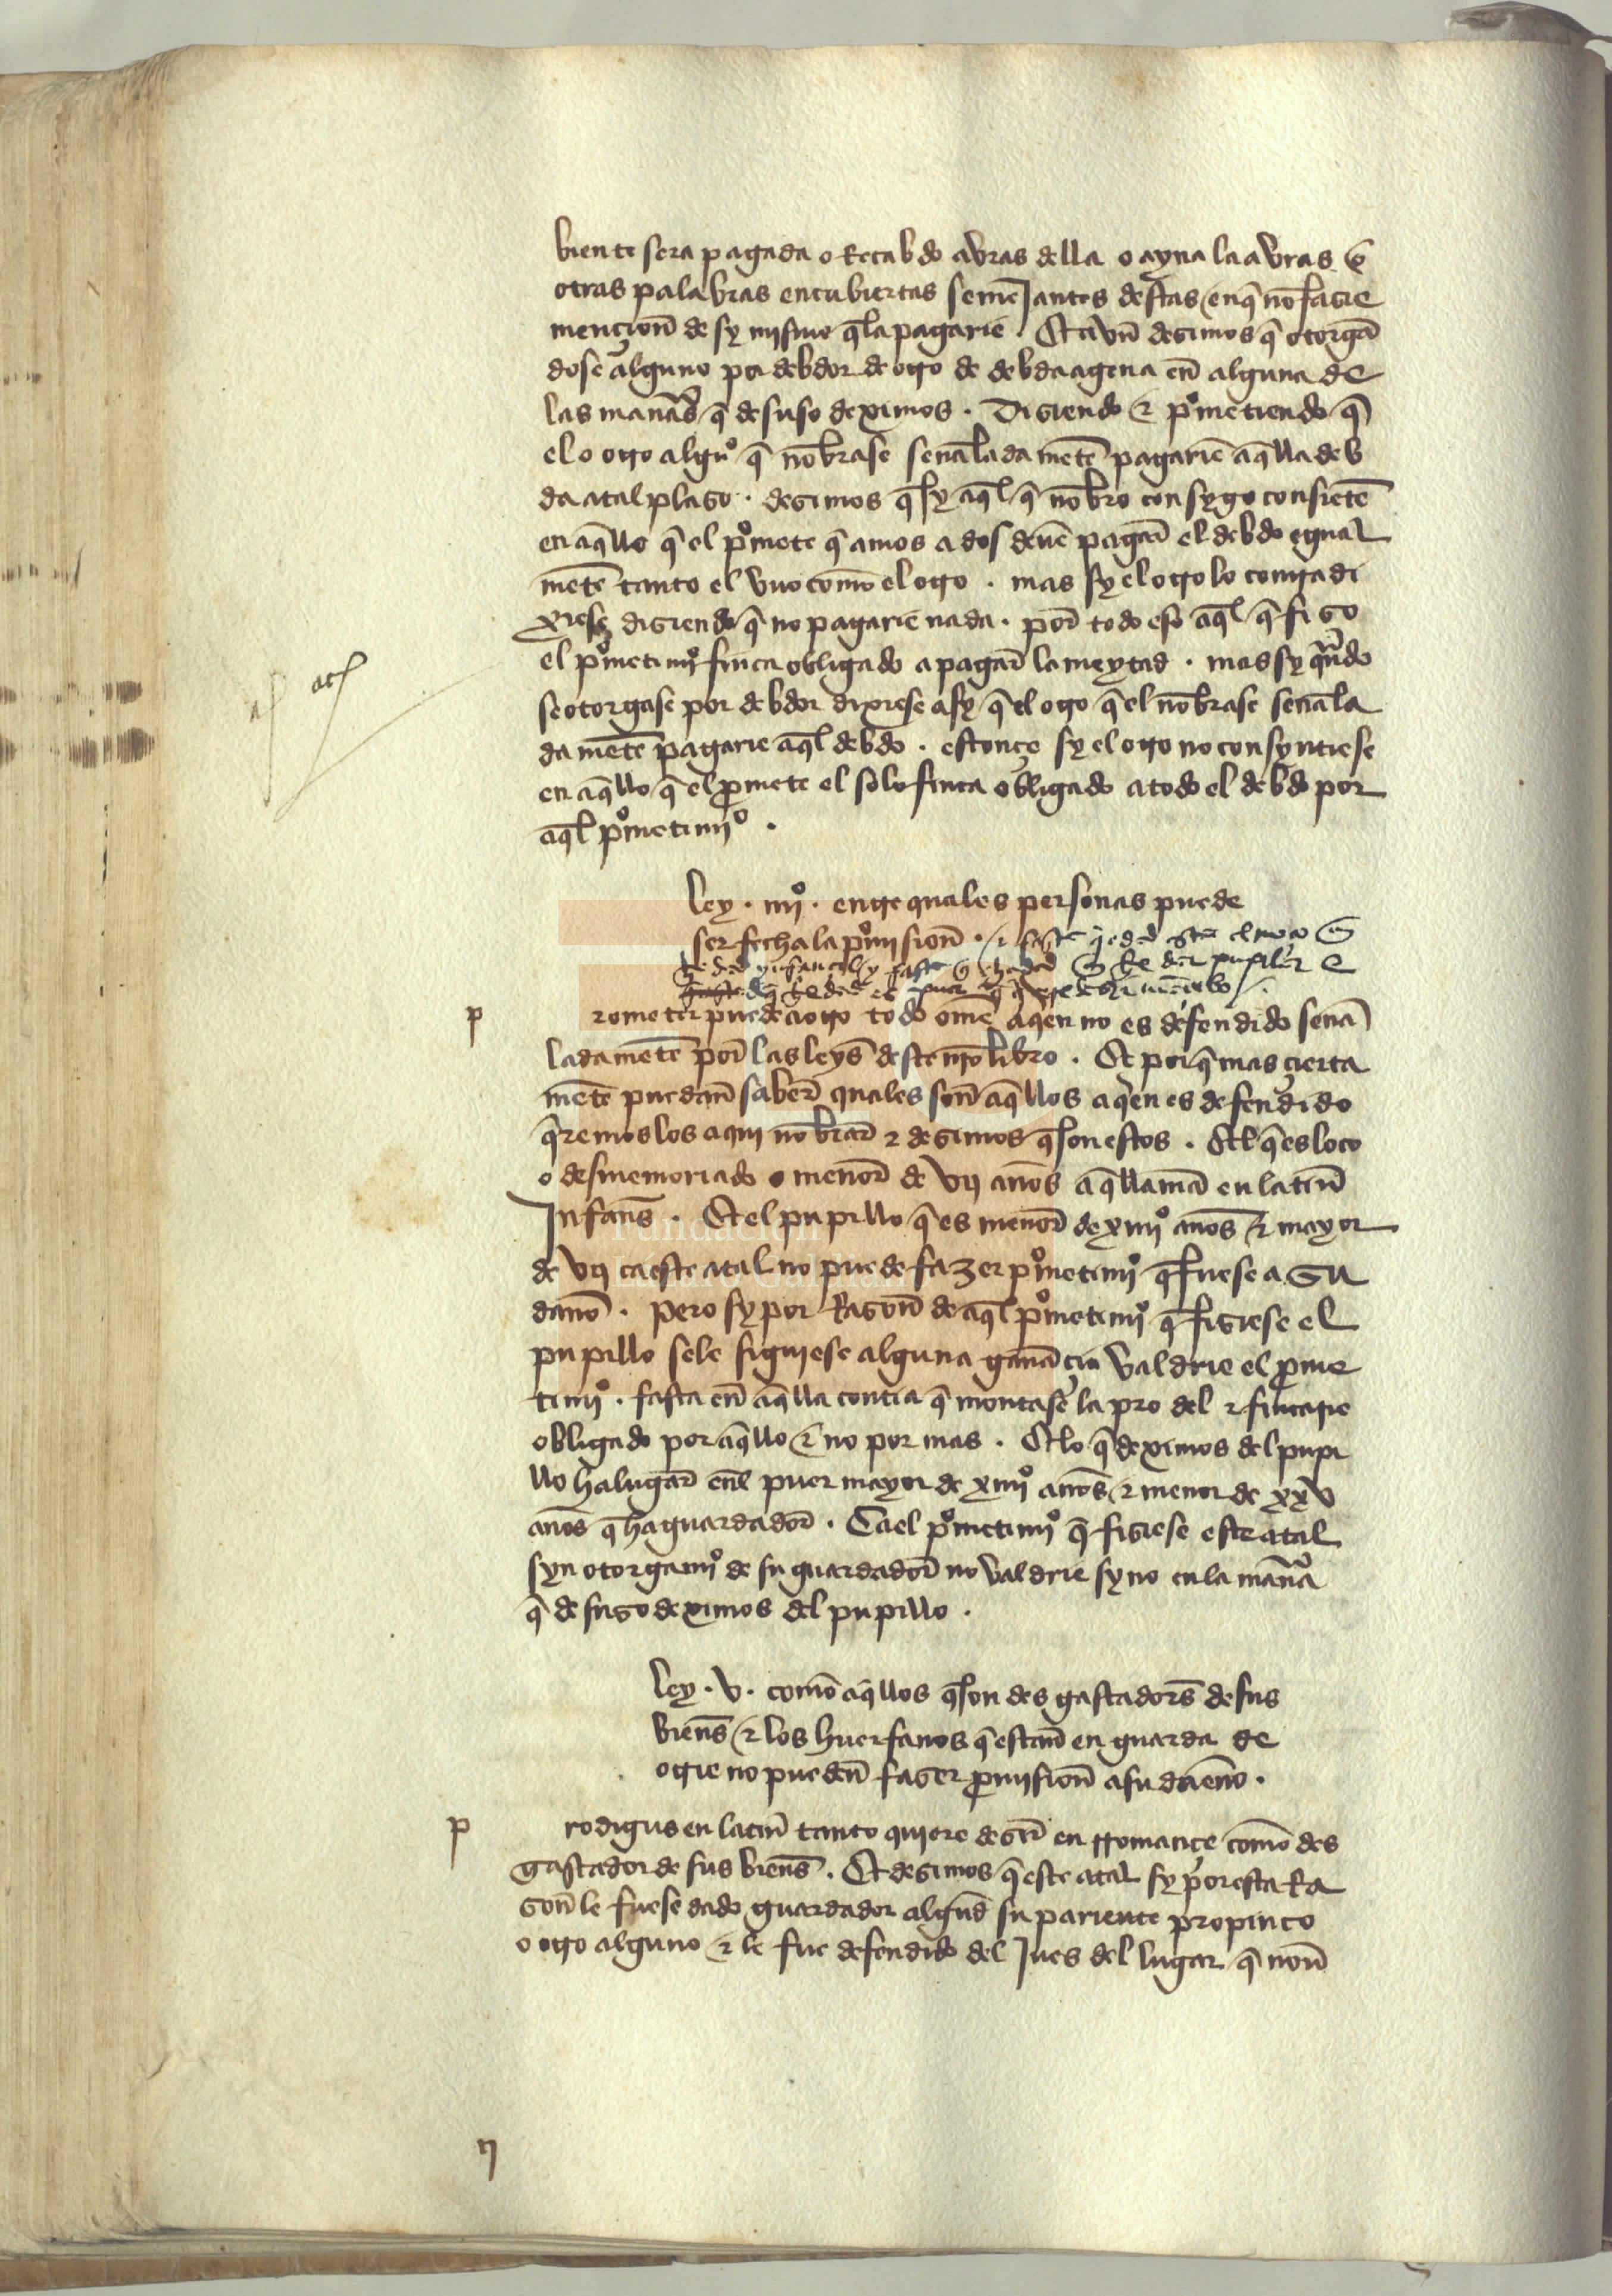 bien te sera pagada o Recabdo avras della o ayna la avras &
otras palabras encubiertas semeJantes destas en q̄ nō fazie
mençion̄ de sy mismo q̄ la pagarie . Et avn̄ dezimos q̄ otorgā
dose alguno por debdor de otro de debda agena en̄ alguna de
las manās q̄ de suso deximos . Diziendo & pºmetiendo q̄
el o otro algūº q̄ nōbrase señalada mētē pagarie aq̄lla deb
da a tal plazo . dezimos q̄ sy aq̄l q̄ nōbro consygo consietē
en aq̄llo q̄ el pºmete q̄ amos a dos deuē pagar̄ el debdo egual
mētē tanto el vno comō el otro . mas sy el otro lo contradi
xiese diziendo q̄ no pagarie nada . por̄ todo eso aq̄l q̄ fizo
el pºmetimiº finca obligado a pagar̄ la meytad . mas sy qn̄do
se otorgase por debdor dixiese asy q̄ el otro q̄ el nōbrase señala
da mētē pagarie aq̄l debdo . estonçe sy el otro no consyntiese
en aq̄llo q̄ el p̄mete el solo finca obligado a todo el debdo por
aq̄l pºmetimiº .
Ley . iiiiº . entre quales personas puede
ser fecha la pºmision̄ .
p
rometer puede a otro todo omē a q̄en no es defendido señā
ladamētē por̄ las leys̄ deste nr̄o libro . Et por q̄ mas çierta
mētē puedan̄ saber̄ quales son̄ aq̄llos a q̄en es defendido
q̄remos los aqui nōbrar̄ & dezimos q̄ son estos . El q̄ es loco
o desmemoriado o menor̄ de vij años a q̄ llamā en latin̄
Infans̄ . Et el pupillo q̄ es menor̄ de xiiiiº años & mayor
de vij ca este atal no puede fazer pºmetimiº q̄ fuese a su
dañō . Pero sy por Razon̄ de aq̄l pºmetimiº q̄ fiziese el
pupillo se le siguiese alguna ganāçia valdrie el p̄me
timiº . fasta en̄ aq̄lla contia q̄ montase la pro del & fincarie
obligado por aq̄llo & no por mas . Et lo q̄ deximos del pupi
llo ha lugar̄ en̄l puer mayor de xiiiiº años & menor de xxv
años q̄ ha guardador̄ . Ca el pºmetimiº q̄ fiziese este atal
syn otorgamiº de su guardador̄ no valdrie sy no en la manā
q̄ de suso deximos del pupillo .
Ley . v . comō aq̄llos q̄ son desgastadors̄ de sus
biens̄ & los huerfanos q̄ estan̄ en guarda de
otrie no pueden̄ fazer p̄mision̄ a su dañō .
p
rodigus en latin̄ tanto quiere dezir̄ en rromançe comō des
gastador de sus biens̄ . Et dezimos q̄ este atal sy por esta Ra
zon̄ le fuese dado guardador algund̄ su pariente propinco
o otro alguno & le fue defendido del Jues del lugar q̄ non̄